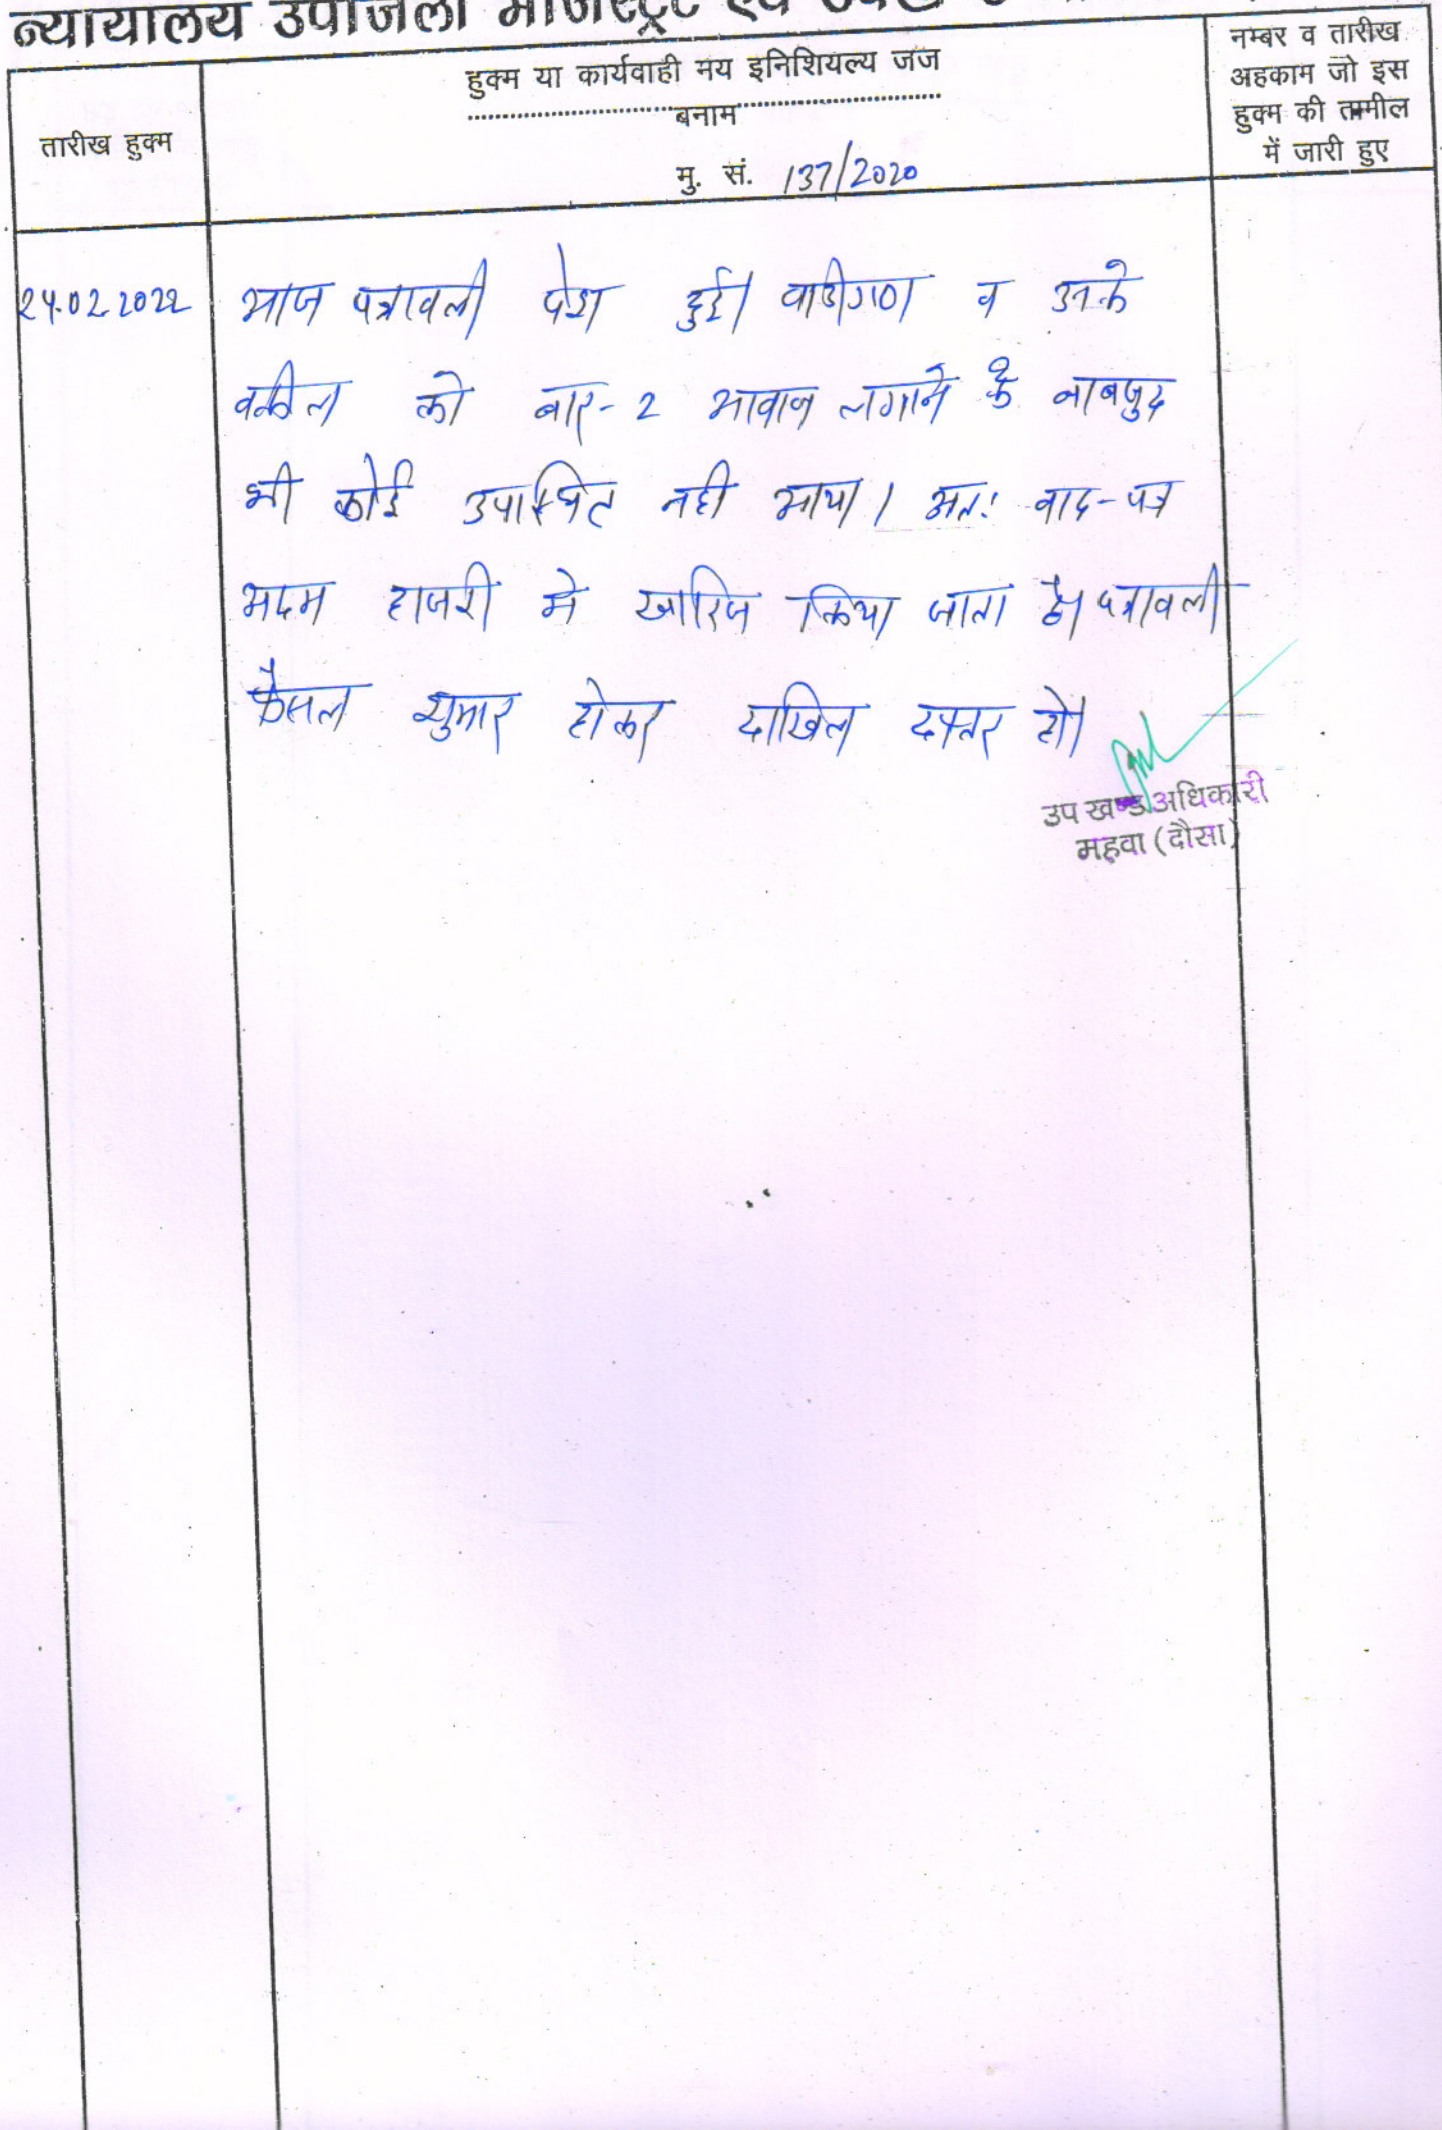 न्यायालय उपजिला मजिस्ट्रेट एवं
तारीख हुक्म
हुक्म या कार्यवाही मय इनिशियल्य जज
बनाम
मु. सं. 137/2020
नम्बर व तारीख
अहकाम जो इस
हुक्म की तामील
में जारी हुए
24.02.2022
आज पत्रावली पेश हुई। वादीगण व उनके
वकील को बार-2 आवाज लगाने के बाबजुद
भी कोई उपस्थित नही आया। अतः वाद-पत्र
अदम हाजरी मे खारिज किया जाता है। पत्रावली
फैसल शुमार होकर दाखिल दफ्तर हो।
उप खण्ड अधिकारी
महवा (दौसा)